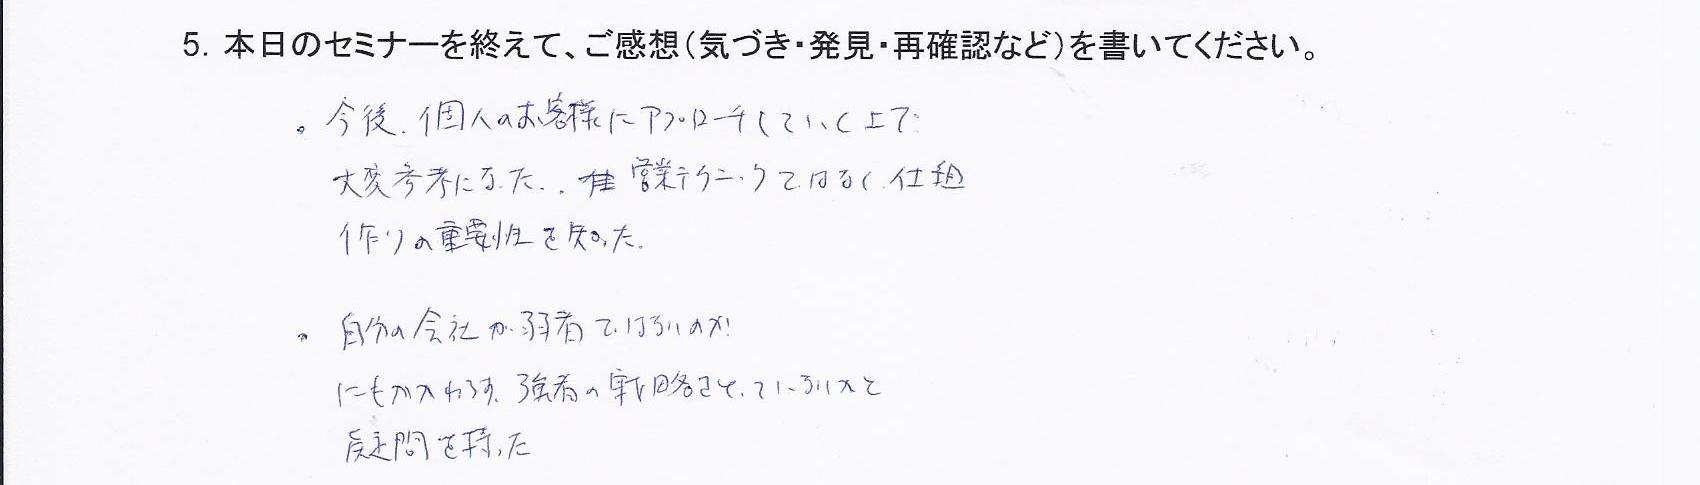 5. 本日のセミナーを終えて、ご感想(気づき・発見・再確認など)を書いてください。
。今後、個人のお客様にアプローチしていく上で
大変参考になった。営業テクニックではなく、仕組
作りの重要性を知った。
。自分の会社が弱者ではないのか!
にもかかわらず、強者の戦略をとっていないかと
疑問を持った